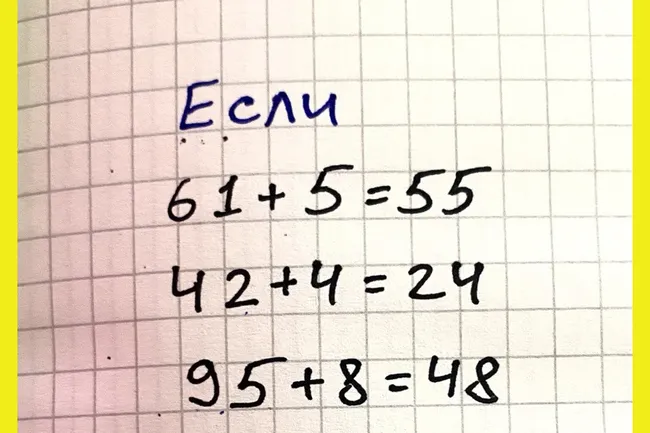 Если
61+5=55
42+4=24
95+8=48